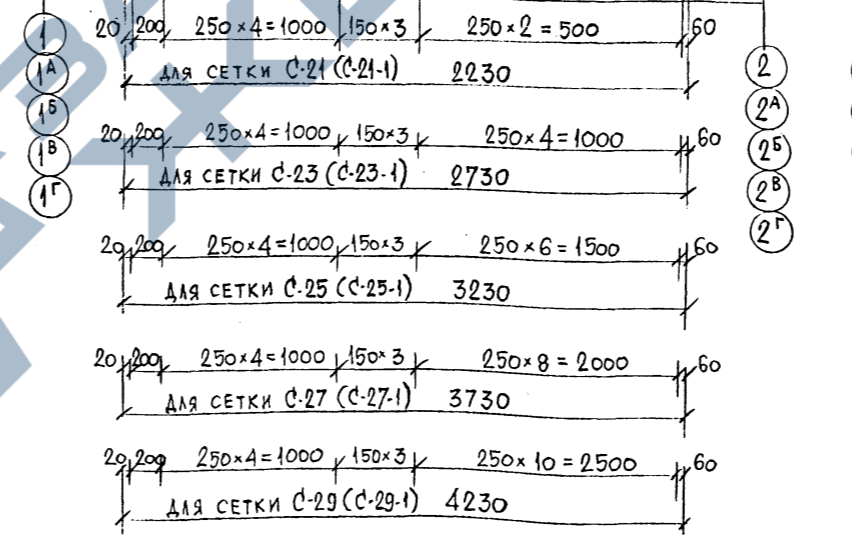 1 20 200 250×4=1000 150×3 250×2=500 60
1А для сетки С-21 (С-21-1) 2230 2
1Б 2А
1В 20 200 250×4=1000 150×3 250×4=1000 60 2Б
1Г для сетки С-23 (С-23-1) 2730 2В
20 200 250×4=1000 150×3 250×6=1500 60 2Г
для сетки С-25 (С-25-1) 3230
20 200 250×4=1000 150×3 250×8=2000 60
для сетки С-27 (С-27-1) 3730
20 200 250×4=1000 150×3 250×10=2500 60
для сетки С-29 (С-29-1) 4230